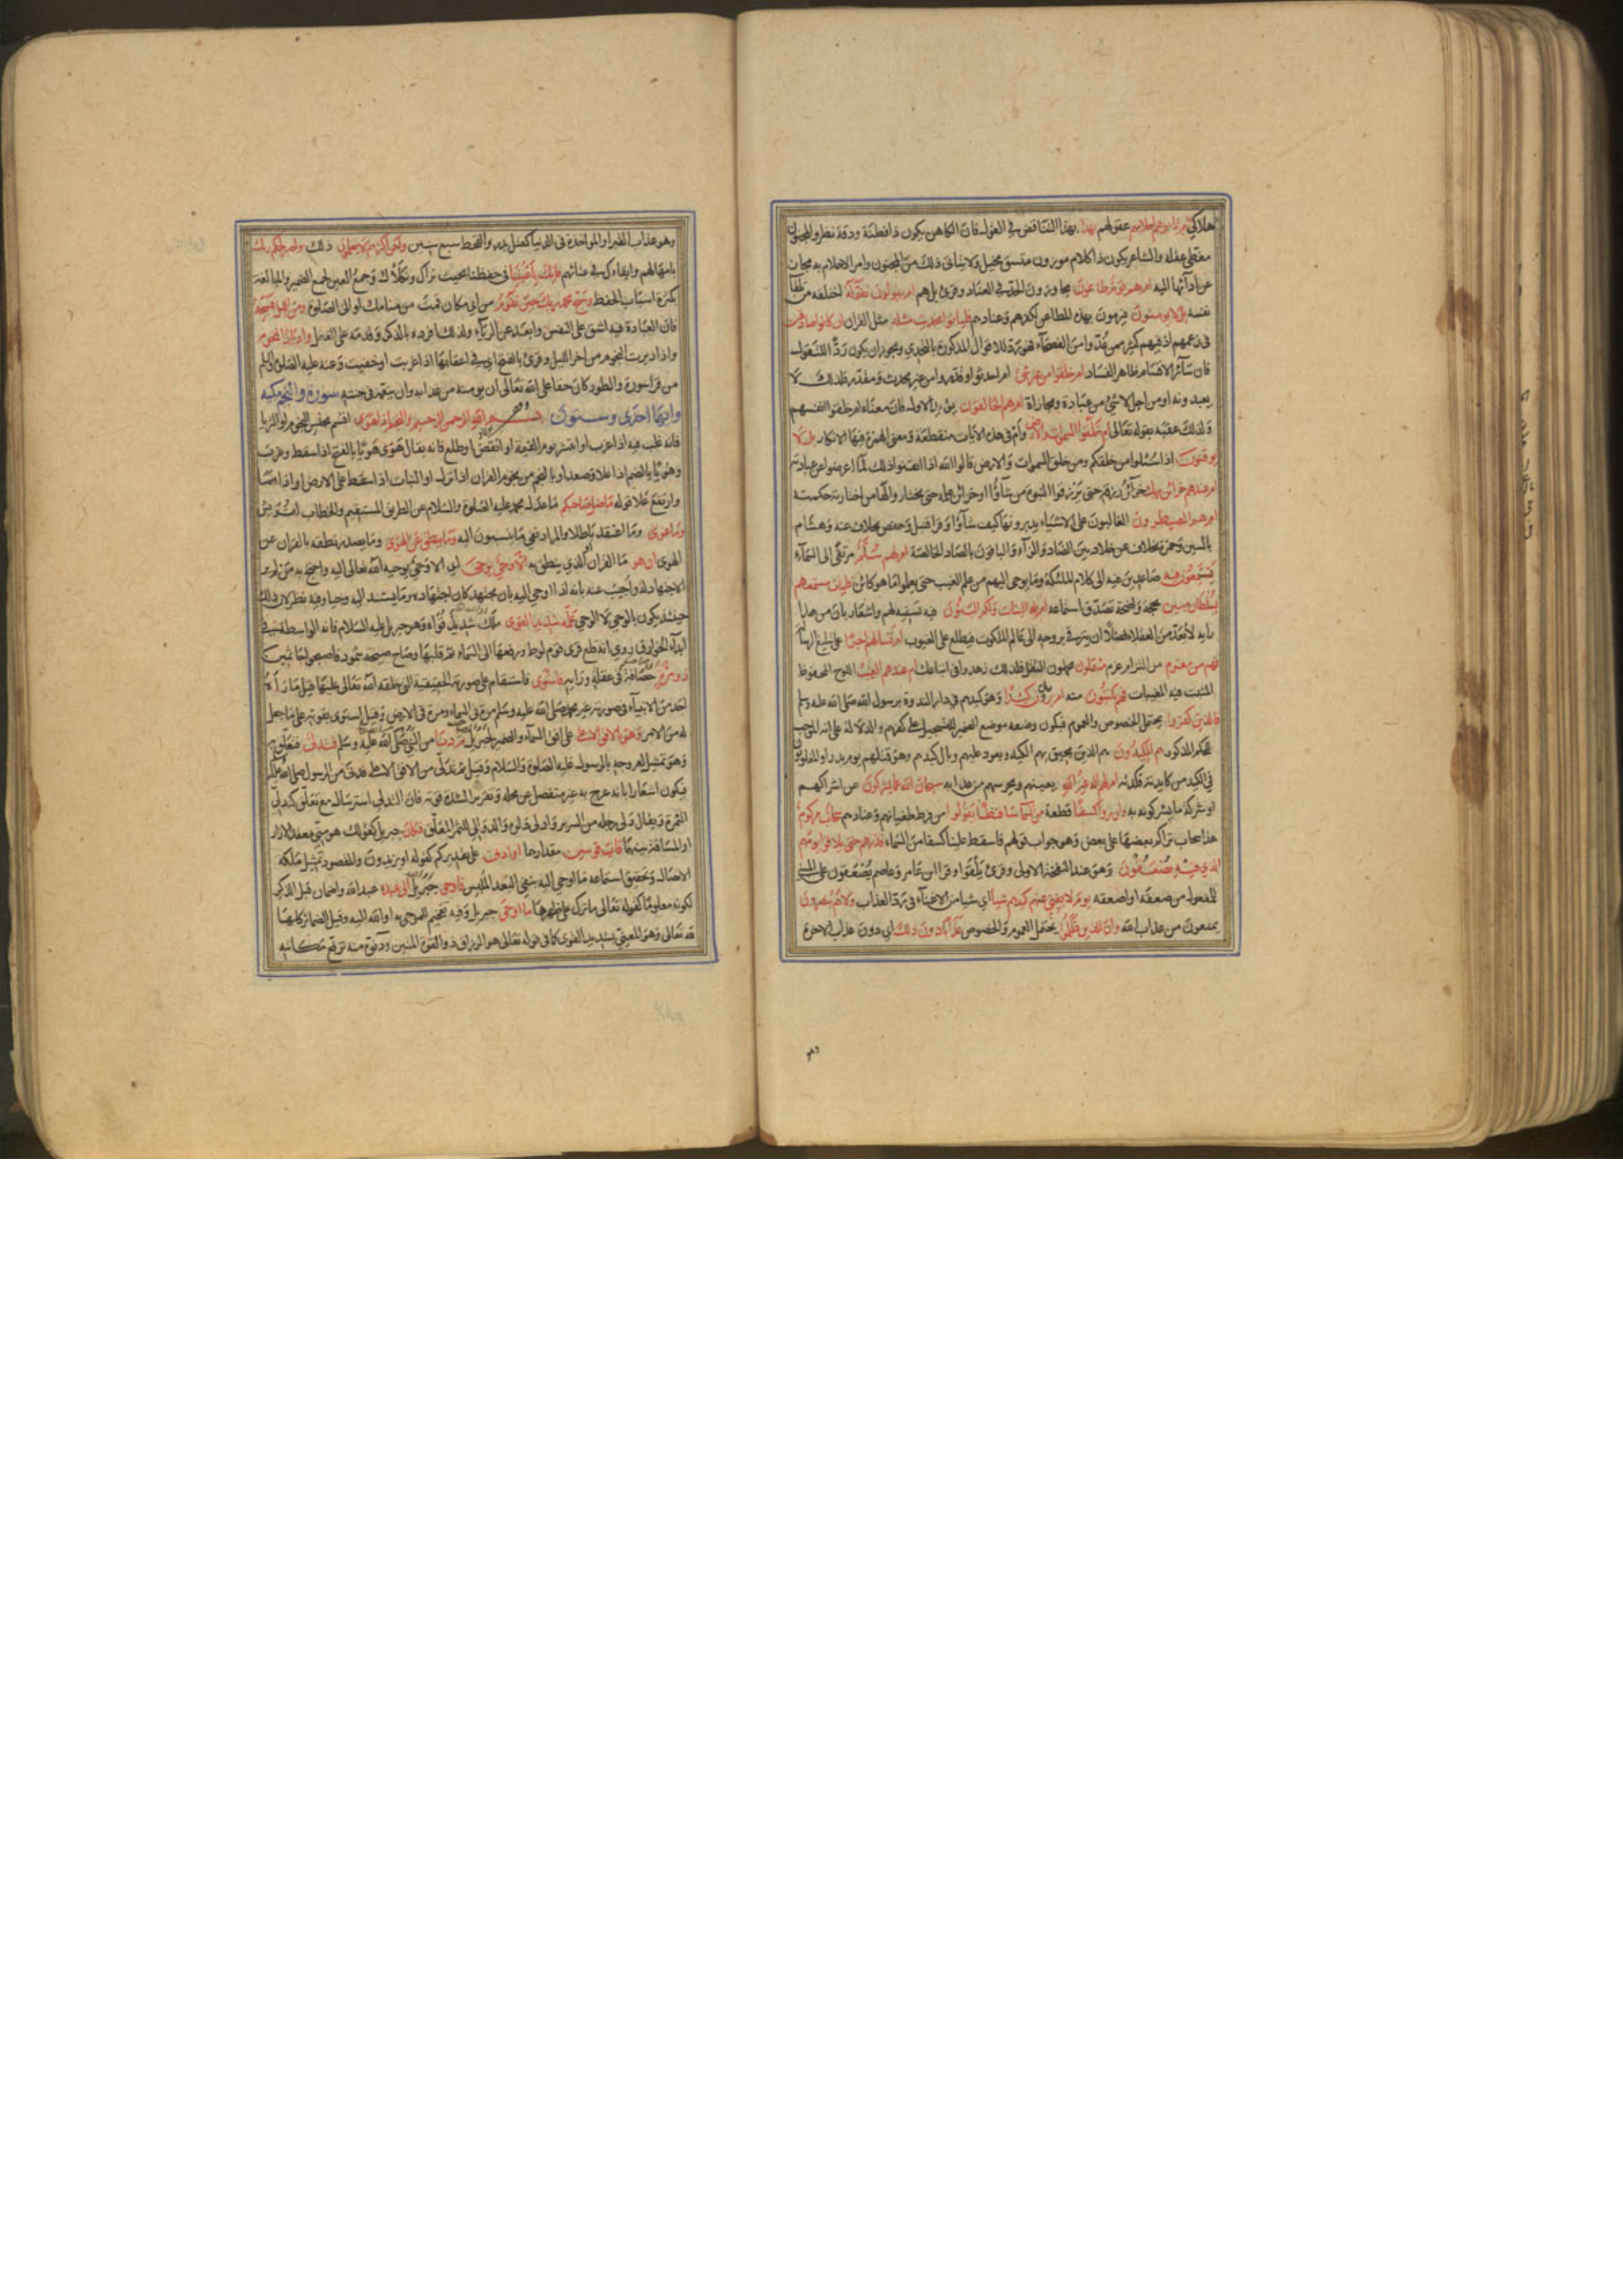 هلاكي ام تامرهم احلامهم عقولهم بهذا بهذا التناقض في القول فان الكاهن يكون ذا فطنة ودقة نظر والمجنون
مغطى عقله والشاعر يكون ذا كلام موزون متسق مخيل ولا يتأتى ذلك من المجنون وامر الاحلام به مجاز
عن ادائها اليه ام هم قوم طاغون مجاوزون الحد في العناد وقرئ بل هم ام يقولون تقوله اختلقه من تلقاء
نفسه بل لا يؤمنون فيرمون بهذه المطاعن لكفرهم وعنادهم فلياتوا بحديث مثله مثل القران ان كانوا صادقين
في زعمهم اذ فيهم كثير ممن عدوا من الفصحاء فهو رد للاقوال المذكورة بالتحدي ويجوز ان يكون ردا للتقول
فان سائر الاقسام ظاهر الفساد ام خلقوا من غير شئ ام احدثوا وقدروا من غير محدث ومقدر فلذلك لا
يعبدونه او من اجل لا شئ من عبادة ومجازاة ام هم الخالقون يؤيد الاول فان معناه ام خلقوا انفسهم
ولذلك عقبه بقوله تعالى ام خلقوا السموات والارض وام في هذه الايات منقطعة ومعنى الهمزة فيها الانكار بل لا
يوقنون اذا سئلوا من خلقكم ومن خلق السموات والارض قالوا الله اذا ايقنوا ذلك لما اعرضوا عن عبادته
ام عندهم خزائن ربك خزائن رزقه حتى يرزقوا النبوة من شاؤا او خزائن علمه حتى يختاروا لها من اختارته حكمته
ام هم المصيطرون الغالبون على الاشياء يدبرونها كيف شاؤا وقرا قنبل وحفص بخلاف عنه وهشام
بالسين وحمزة بخلاف عن خلاد بين الصاد والزاء والباقون بالصاد الخالصة ام لهم سلم مرتقى الى السماء
يستمعون فيه صاعدين فيه الى كلام الملئكة وما يوحى اليهم من علم الغيب حتى يعلموا ما هو كائن فليات مستمعهم
بسلطان مبين بحجة واضحة تصدق استماعه ام له البنات ولكم البنون فيه تسفيه لهم واشعار بان من هذا
رايه لا يعد من العقلاء فضلا ان يترقى بروحه الى عالم الملكوت فيطلع على الغيوب ام تسالهم اجرا على تبليغ الرسالة
فهم من مغرم من التزام غرم مثقلون محملون الثقل فلذلك زهدوا في اتباعك ام عندهم الغيب اللوح المحفوظ
المثبت فيه المغيبات فهم يكتبون منه ام يريدون كيدا وهو كيدهم في دار الندوة برسول الله صلى الله عليه وسلم
فالذين كفروا يحتمل الخصوص والعموم فيكون وضعه موضع الضمير للتسجيل على كفرهم والدلالة على انه الموجب
للحكم المذكور هم المكيدون هم الذين يحيق بهم الكيد ويعود عليهم وبال كيدهم وهو قتلهم يوم بدر او المغلوبون
في الكيد من كايدته فكدته ام لهم اله غير الله يعينهم ويحرسهم من عذابه سبحان الله عما يشركون عن اشراكهم
او شركة ما يشركونه به وان يروا كسفا قطعة من السماء ساقطا يقولوا من فرط طغيانهم وعنادهم سحاب مركوم
هذا سحاب تراكم بعضها على بعض وهو جواب قولهم فاسقط علينا كسفا من السماء فذرهم حتى يلاقوا يومهم
الذي فيه يصعقون وهو عند النفخة الاولى وقرئ يلقوا وقرا ابن عامر وعاصم يصعقون على المبنى
للمفعول من صعقه او اصعقه يوم لا يغني عنهم كيدهم شيئا اي شيئا من الاغناء في رد العذاب ولا هم ينصرون
يمنعون من عذاب الله وان للذين ظلموا يحتمل العموم والخصوص عذابا دون ذلك اي دون عذاب الاخرة
وهو
وهو عذاب القبر او المؤاخذة في الدنيا كقتلهم ببدر والقحط سبع سنين ولكن اكثرهم لا يعلمون ذلك واصبر لحكم ربك
بامهالهم وابقائك في عنائهم فانك باعيننا في حفظنا بحيث نراك ونكلاك وجمع العين لجمع الضمير والمبالغة
بكثرة اسباب الحفظ وسبح بحمد ربك حين تقوم من اي مكان قمت من منامك او الى الصلوة ومن الليل فسبحه
فان العبادة فيه اشق على النفس وابعد عن الرياء ولذلك افرده بالذكر وقدمه على الفعل وادبار النجوم
واذا ادبرت النجوم من اخر الليل وقرئ بالفتح اي في اعقابها اذا غربت او خفيت وعنه عليه الصلوة والسلم
من قرا سورة والطور كان حقا على الله تعالى ان يؤمنه من عذابه وان ينعمه في جنته سورة والنجم مكية
وايها احدى وستون بسم الله الرحمن الرحيم والنجم اذا هوى اقسم بجنس النجوم او الثريا
فانه غلب فيه اذا غرب او انتثر يوم القيمة او انقض او طلع فانه يقال هوى هويا بالفتح اذا سقط وغرب
وهويا بالضم اذا علا وصعد او بالنجم من نجوم القران اذا نزل او النبات اذا سقط على الارض او اذا نما
وارتفع على قوله ما ضل صاحبكم ما عدل محمد عليه الصلوة والسلام عن الطريق المستقيم والخطاب لقريش
وما غوى وما اعتقد باطلا والمراد نفي ما ينسبون اليه وما ينطق عن الهوى وما يصدر نطقه بالقران عن
الهوى ان هو ما القران او الذي ينطق به الا وحي يوحى اي الا وحي يوحيه الله تعالى اليه واحتج به من لم ير
الاجتهاد له واجيب عنه بانه اذا اوحي اليه بان يجتهد كان اجتهاده وما يستند اليه وحيا وفيه نظر لان ذلك
حينئذ يكون بالوحي لا الوحي علمه شديد القوى ملك شديد قواه وهو جبريل عليه السلام فانه الواسطة في
ابداء الخوارق روي انه قلع قرى قوم لوط ورفعها الى السماء ثم قلبها وصاح صيحة بثمود فاصبحوا جاثمين
ذو مرة حصافة في عقله ورايه فاستوى فاستقام على صورته الحقيقية التي خلقه الله تعالى عليها قيل ما راه
احد من الانبياء في صورته غير محمد صلى الله عليه وسلم مرة في السماء ومرة في الارض وقيل استوى بقوته على ما جعل
له من الامر وهو بالافق الاعلى على افق السماء والضمير لجبريل ثم دنا من النبي صلى الله عليه وسلم فتدلى فتعلق به
وهو تمثيل لعروجه بالرسول عليه الصلوة والسلام وقيل ثم تدلى من الافق الاعلى فدنى من الرسول صلى الله عليه وسلم
فيكون اشعارا بانه عرج به غير منفصل عن محله وتقريرا لشدة قوته فان التدلي استرسال مع تعلق كتدلي
الثمرة ويقال دلى رجله من السرير وادلى دلوه والدوالي الثمر المعلق فكان جبريل كقولك هو مني معقد الازار
او المسافة بينهما قاب قوسين مقدارهما او ادنى على تقديركم كقوله او يزيدون والمقصود تمثيل ملكة
الاتصال وتحقيق استماعه ما اوحي اليه بنفي البعد الملبس فاوحى جبريل الى عبده عبد الله واضماره قبل الذكر
لكونه معلوما كقوله تعالى ما ترك على ظهرها ما اوحى جبريل وفيه تفخيم للموحى به او الله اليه وقيل الضمائر كلها
لله تعالى وهو المعني بشديد القوى كما في قوله تعالى هو الرزاق ذو القوة المتين ودنوه منه برفع مكانته